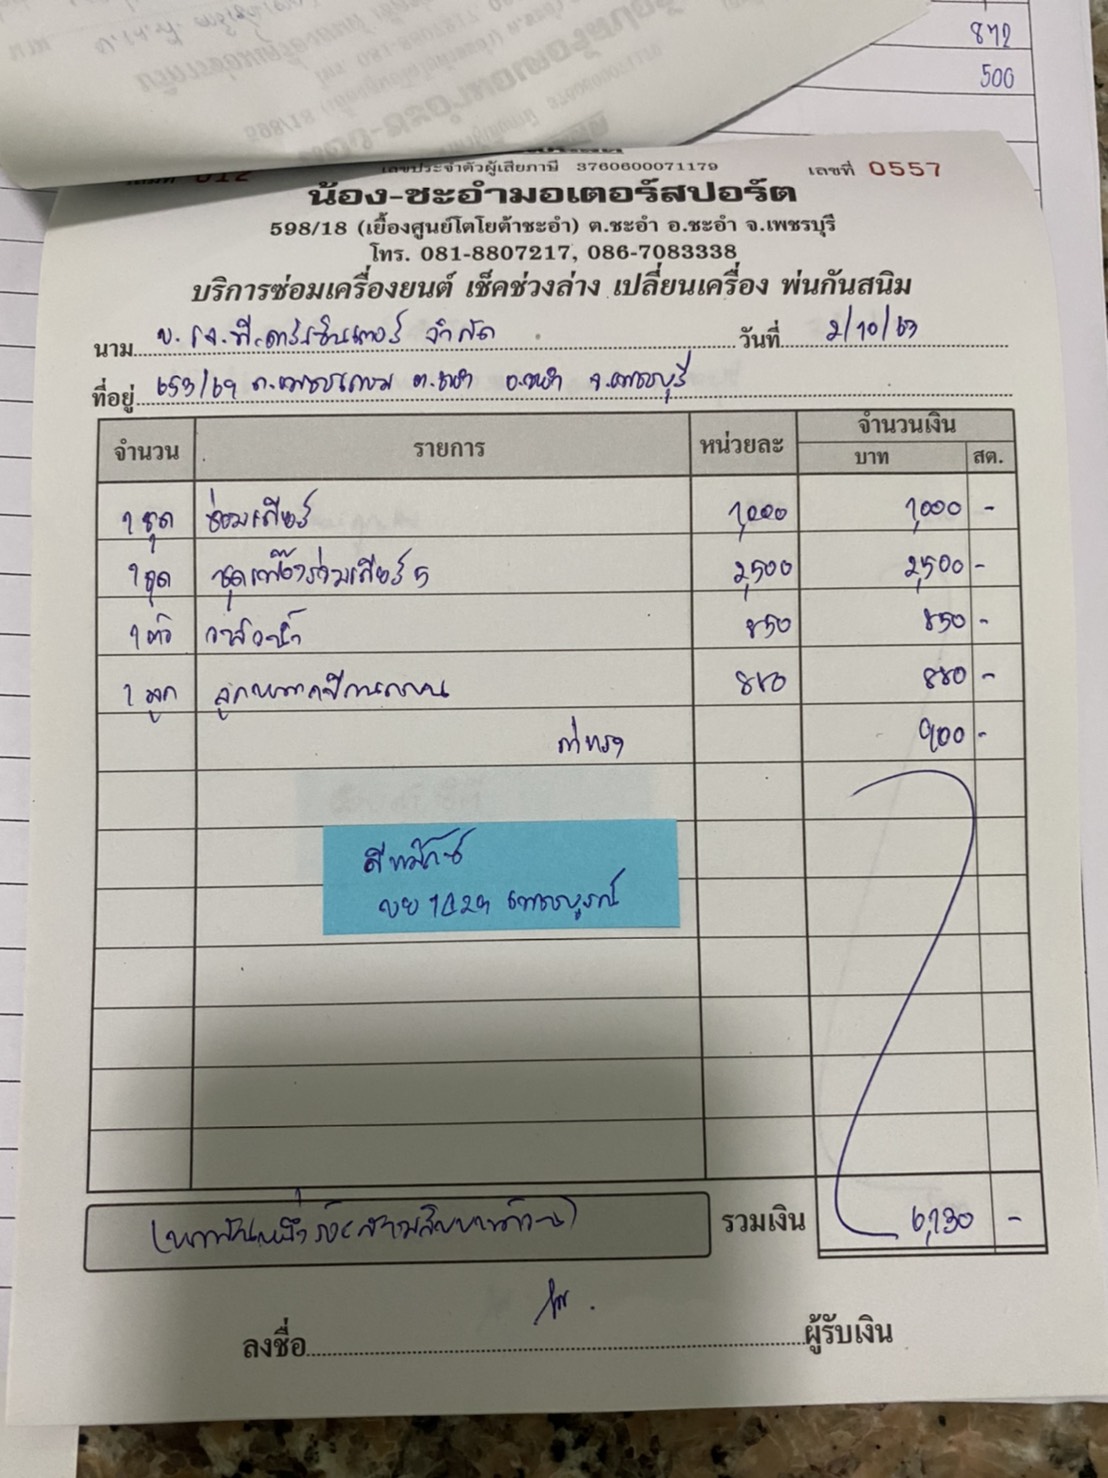 872
500
เลขประจำตัวผู้เสียภาษี 3760600071179 เลขที่ 0557
น้อง-ชะอำมอเตอร์สปอร์ต
598/18 (เยื้องศูนย์โตโยต้าชะอำ) ต.ชะอำ อ.ชะอำ จ.เพชรบุรี
โทร. 081-8807217, 086-7083338
บริการซ่อมเครื่องยนต์ เช็คช่วงล่าง เปลี่ยนเครื่อง พ่นกันสนิม
นาม บ. เจ.พี.คาร์เซ็นเตอร์ จำกัด วันที่ 2/10/63
ที่อยู่ 653/69 ถ.เพชรเกษม ต.ชะอำ อ.ชะอำ จ.เพชรบุรี
จำนวน รายการ หน่วยละ จำนวนเงิน
บาท สต.
1 ชุด ซ่อมเกียร์ 1,000 1,000 -
1 ชุด ชุดเฟืองร่วมเกียร์ 5 2,500 2,500 -
1 ตัว วาล์วน้ำ 850 850 -
1 ลูก 880 880 -
ค่าแรง 900 -
ดีแม็กซ์
เพชรบูรณ์
(หกพันหนึ่งร้อยสามสิบบาทถ้วน) รวมเงิน 6,130 -
ลงชื่อ ผู้รับเงิน